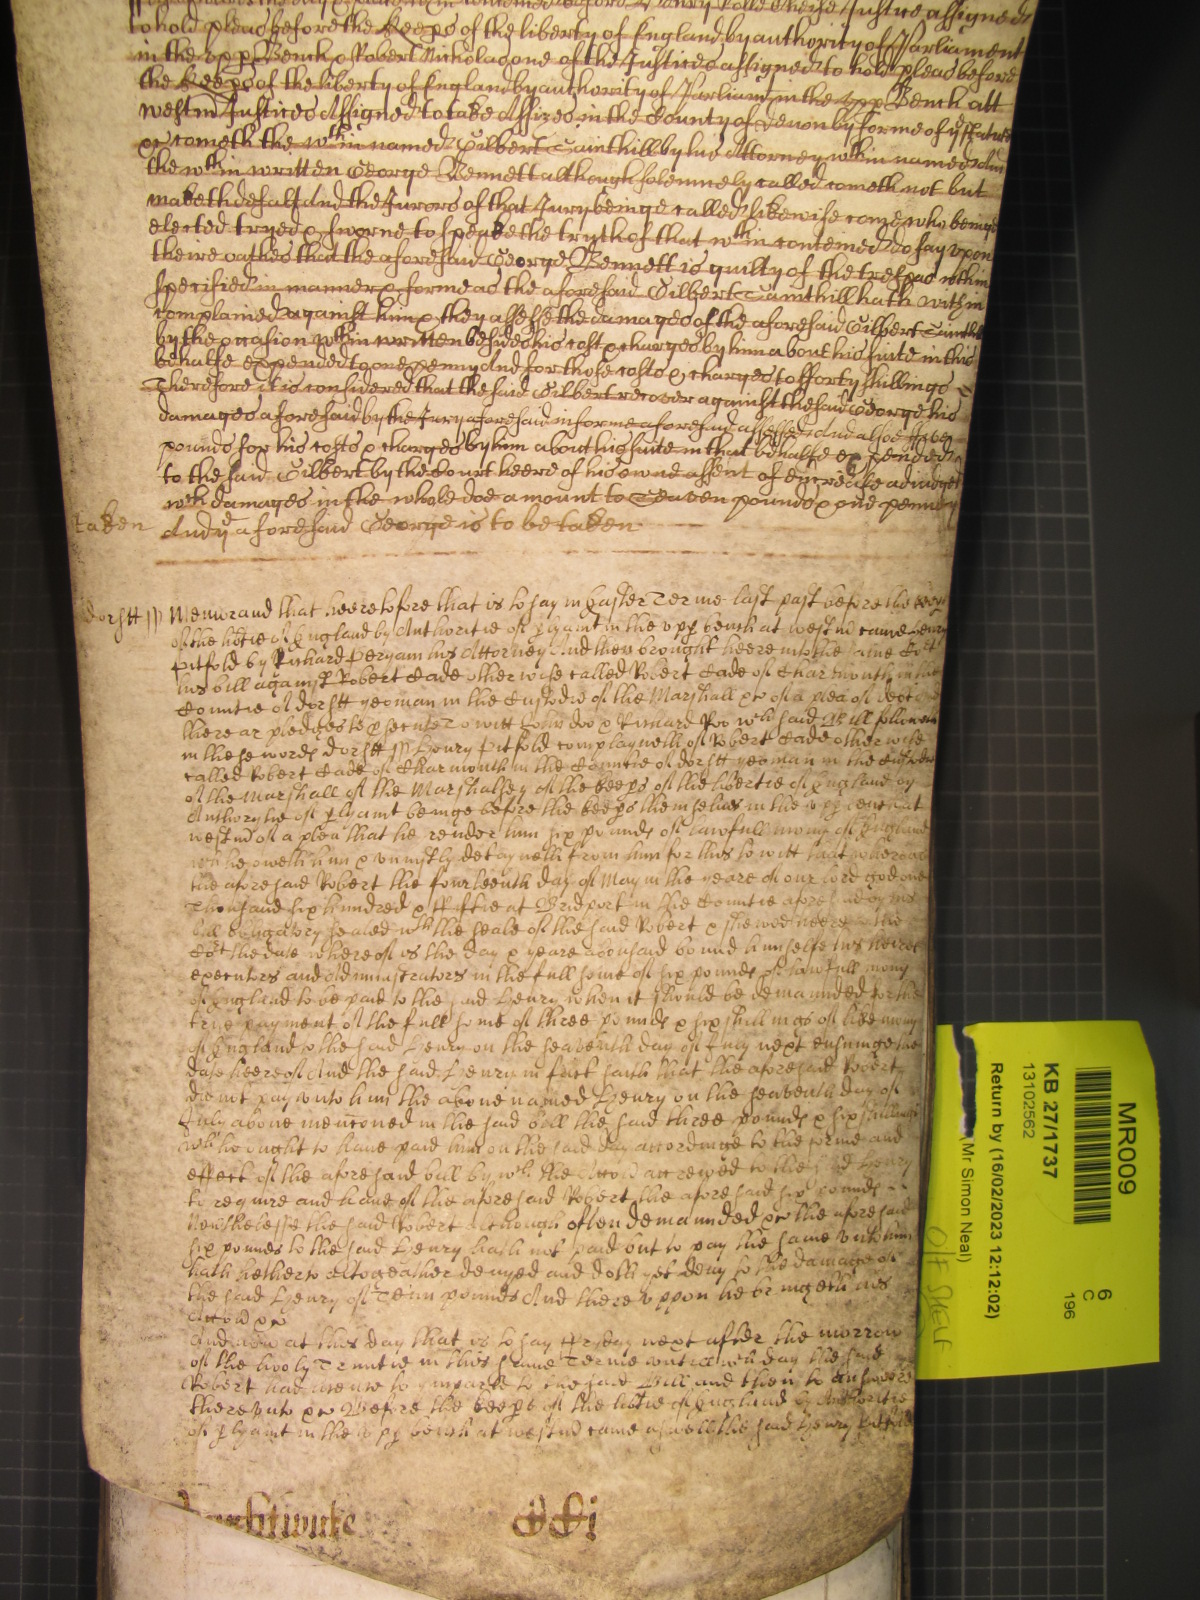 to hold pleas before the Keeps of the liberty of England by authority of Parliament
in the upp Bench & Robert Nicholas one of the Justices assigned to hold pleas before
the Keeps of the liberty of England by authority of Parliamt in the upp Bench att
Westm Justices Assigned to take Assizes in the County of Devon by forme of ye statute
&c cometh the wthin named Gilbert Cainthill by his Attorney wthin named And
the wthin written George Bennett although solemnely called cometh not but
maketh defalt And the Jurors of that Jury beinge called likewise come who beinge
elected tryed & sworne to speake the truth of that wthin conteined do say upon
theire oathes that the aforesaid George Bennett is guilty of the trespas within
specified in manner & forme as the aforesaid Gilbert Cainthill hath within
complained against him & they assesse the damages of the aforesaid Gilbert
by the occasion wthin written besides his cost & charges by him about his suite in this
behalfe expended to one penny And for those costs & charges to fforty shillings
Therefore it is considered that the said Gilbert recover against the said George his
damages aforesaid by the Jury aforesaid in forme aforesaid assessed And alsoe
pounds for his costs & charges by him about his suite in that behalfe expended
to the said Gilbert by the Court heere of his owne assent of encrease adiudged
wch damages in the whole doe amount to Seaven pounds & one penney
taken And ye aforesaid George is to be taken
Dorstt ss Memorand that heeretofore that is to say in Easter Terme last past before the
of the libtie of England by Authoritie of plyamt in the upp bench at westm came Henry
Pitfold by Richard Peryam his Attorney And then brought heere into the same Cort
his bill against Robert Cade otherwise called Robert Cade of Charmouth in the
Countie of Dorstt yeoman in the Custodie of the Marshall &c of a plea of dept
there ar pledges to psecute To witt John Doo & Richard Roo wch said Bill followeth
in these words Dorstt ss Henry Pitfold complayneth of Robert Cade otherwise
called Robert Cade of Charmouth in the Countie of Dorstt yeoman in the
of the Marshall of the Marshalsey of the keeps of the libertie of England by
Authorytie of plyamt beinge before the keeps themselves in the upp bench at
westm of a plea that he render him six pounds of lawfull mony of England
wch he oweth him & uniustly detayneth from him for this to witt that whereas
the aforesaid Robert the fourteenth day of May in the yeare of our lord god one
Thousand six hundred & fiftie at Bridport in the Countie aforesaid by his
bill obligatory sealed wth the seale of the said Robert & shewed heere
Cort the date whereof is the day & yeare abovsaid bound himselfe his heires
executors and Administrators in the full some of six pounds of lawfull mony
of England to be paid to the said Henry when it should be demaunded for the
true payment of the full some of three pounds & six shillings of like mony
of England to the said Henry on the seaventh day of July next ensuinge the
date heereof And the said Henry in fact saith that the aforesaid Robert
did not pay unto him the above named Henry on the seaventh day of
July above mentoned in the said bill the said three pounds & six shillings
wch he ought to have paid him on the said day accordinge to the forme and
effect of the aforesaid bill by wch the Accon accrewed to the said Henry
to require and have of the aforesaid Robert the aforesaid six pounds
Nevthelesse the said Robert although often demaunded &c the aforesaid
six pounds to the said Henry hath not paid but to pay the same unto him
hath hetherto altogeather denyed and doth yet deny to the damage of
the said Henry of Tenn pounds And thereuppon he bringeth his
Accon &c
And now at this day that is to say ffryday next after the morrow
of the hooly Trinitie in this same Terme untill wch day the said
Robert had leave to imparle to the said Bill and then to answere
thereunto &c Before the keeps of the libtie of England by Authoritie
of plyamt in the upp bench at westm came aswell the said Henry Pitfold
MR009
6
C
196
KB 27/1737
13102562
Return by (16/02/2023 12:12:02)
(Mr Simon Neal)
OFF SHELF